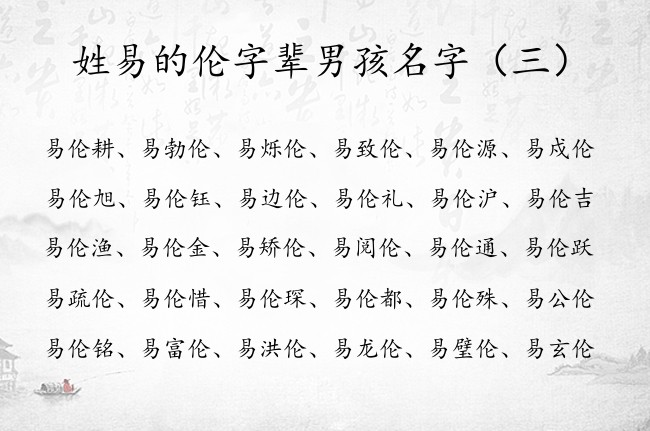 姓易的伦字辈男孩名字（三）
易伦耕、易勃伦、易烁伦、易致伦、易伦源、易戍伦
易伦旭、易伦钰、易边伦、易伦礼、易伦沪、易伦吉
易伦渔、易伦金、易矫伦、易阅伦、易伦通、易伦跃
易疏伦、易伦惜、易伦琛、易伦都、易伦殊、易公伦
易伦铭、易富伦、易洪伦、易龙伦、易璧伦、易玄伦